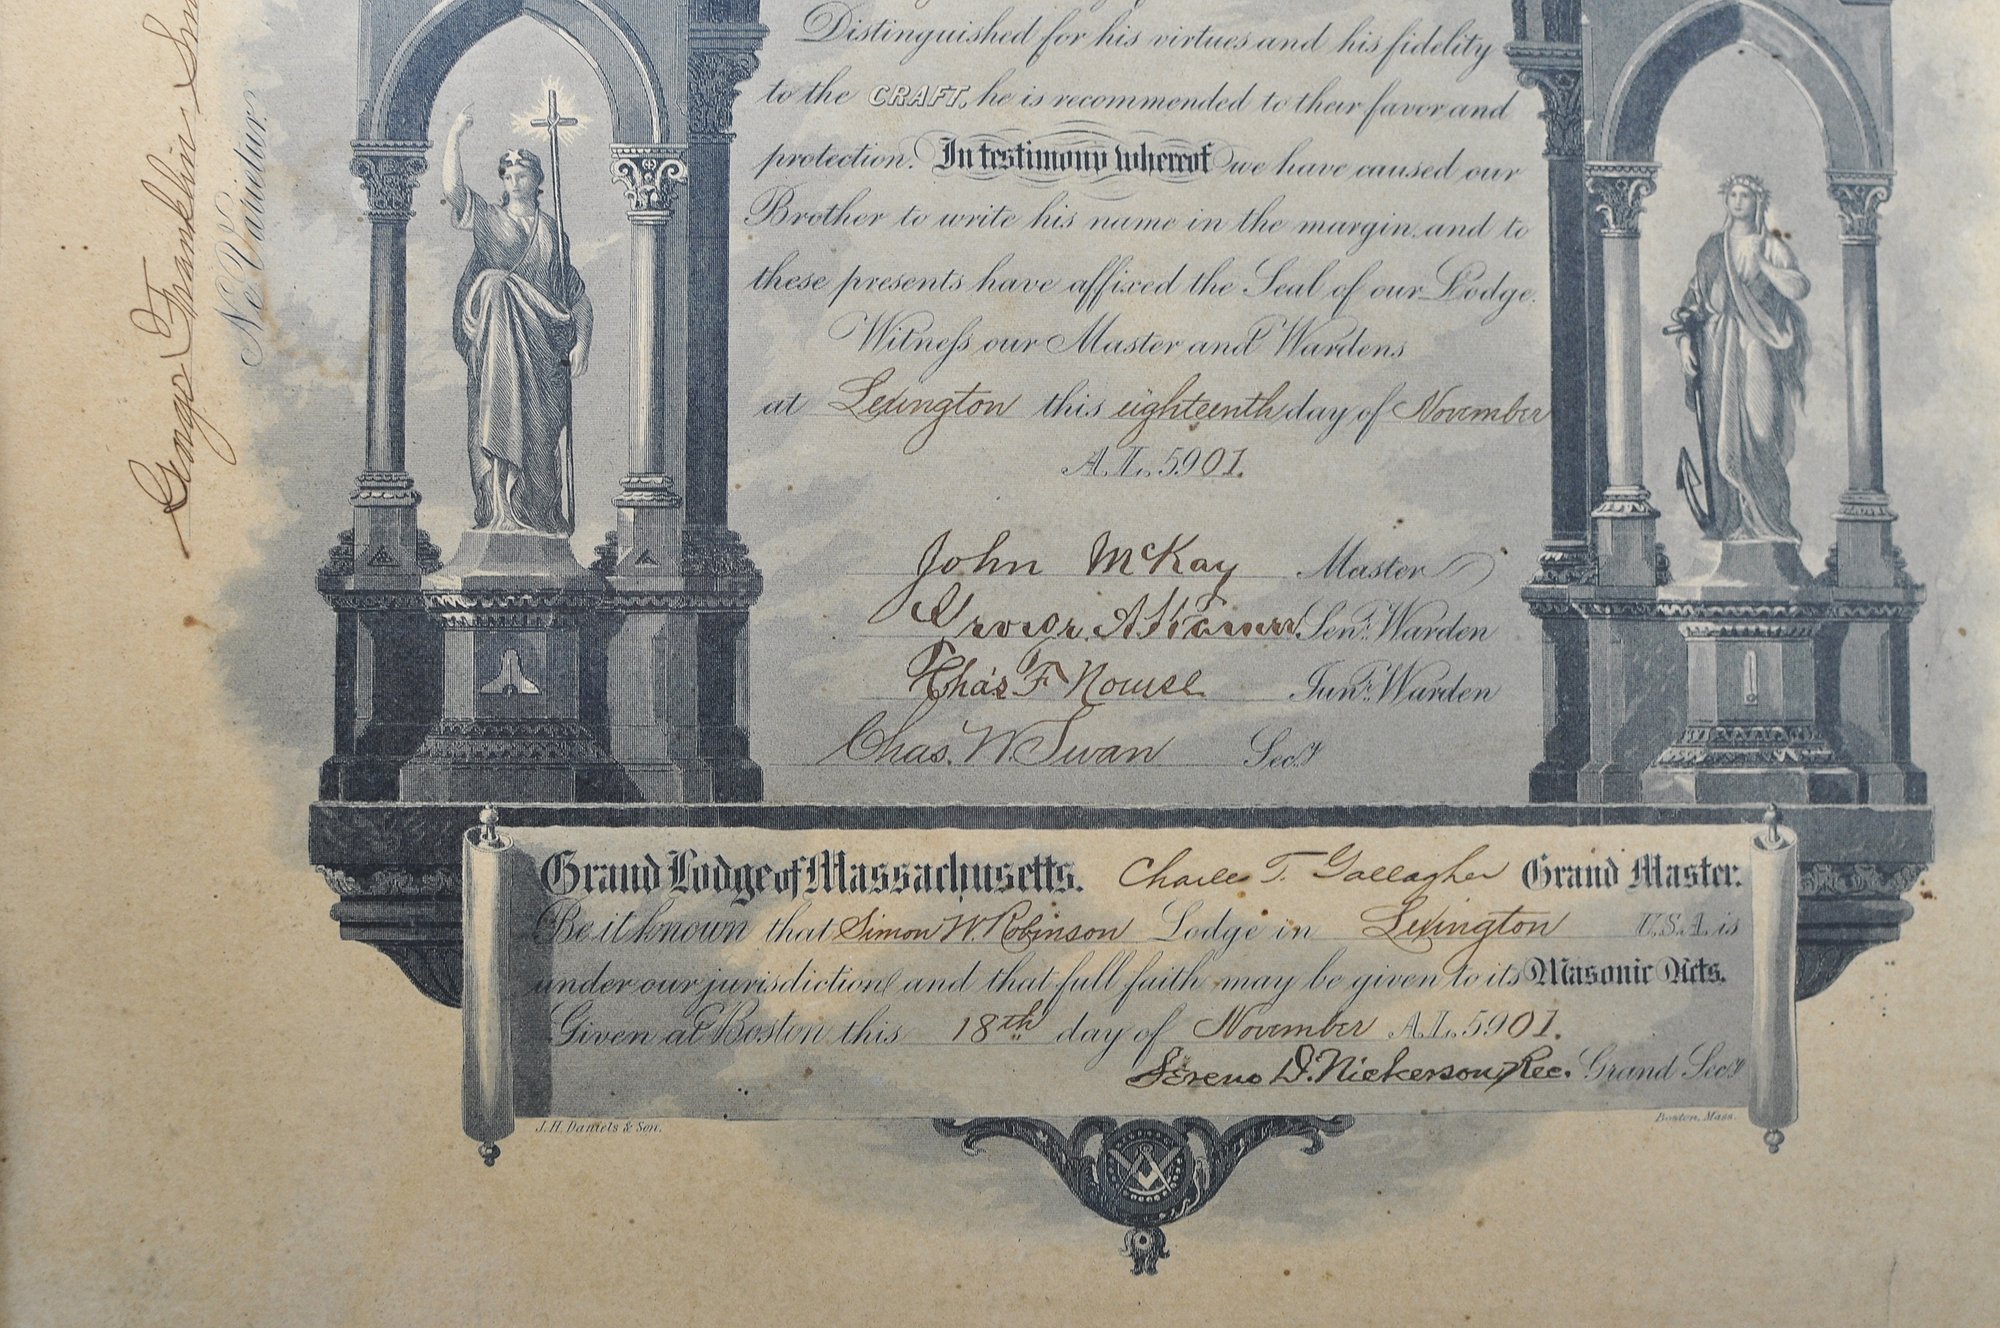 Distinguished for his virtues and his fidelity
to the CRAFT, he is recommended to their favor and
protection. In testimony whereof we have caused our
Brother to write his name in the margin, and to
these presents have affixed the Seal of our Lodge.
Witness our Master and Wardens
at Lexington this eighteenth day of November
A.L. 5901.
John McKay Master
Senr. Warden
Chas F Nourse Junr. Warden
Chas. W. Swan Secy
George Franklin
Ne Varietur.
Grand Lodge of Massachusetts. Charles T. Gallagher Grand Master.
Be it known that Simon W. Robinson Lodge in Lexington U.S.A. is
under our jurisdiction and that full faith may be given to its Masonic Acts.
Given at Boston this 18th day of November A.L. 5901.
Sereno D. Nickerson, Rec. Grand Secy
J.H. Daniels & Son. Boston, Mass.
G